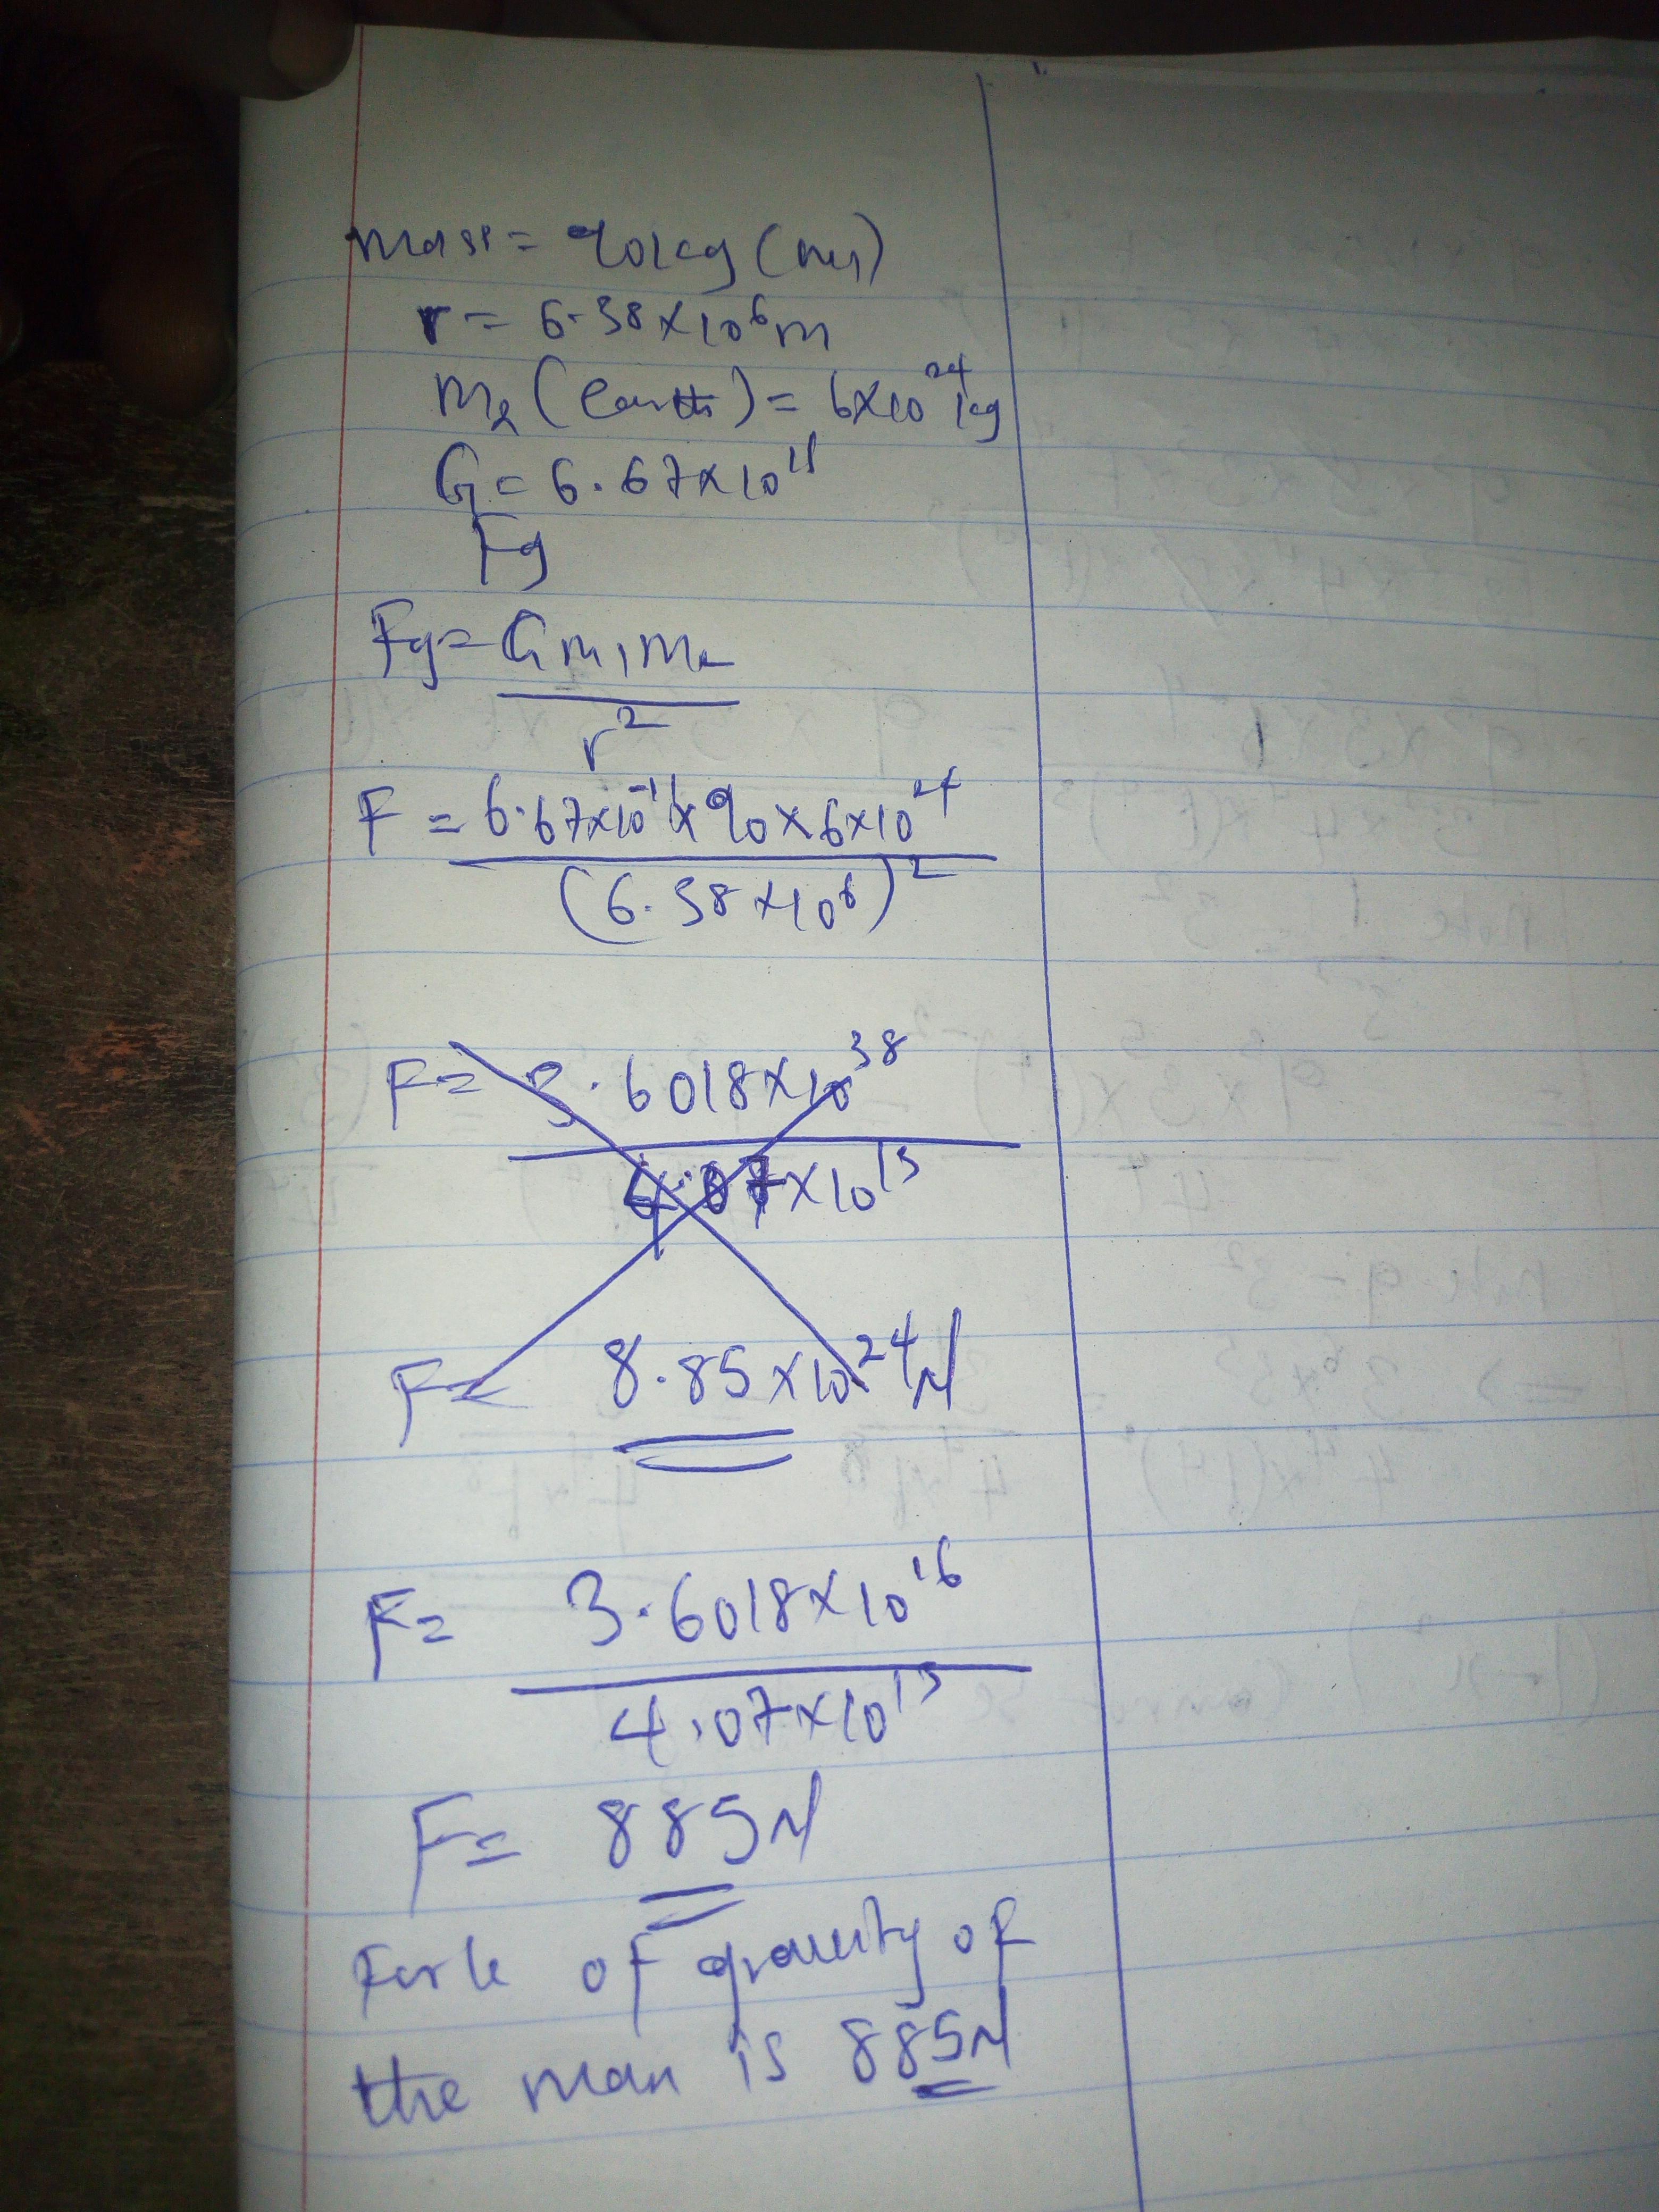 mass = 90kg (m₁)
r = 6.38×10⁶m
m₂ (earth) = 6×10²⁴kg
G = 6.67×10¹¹
Fg
Fg = Gm₁m₂
r²
F = 6.67×10⁻¹¹×90×6×10²⁴
(6.38×10⁶)²
F = 3.6018×10³⁸
4.07×10¹³
F = 8.85×10²⁴N
F = 3.6018×10¹⁶
4.07×10¹³
F = 885N
Force of gravity of
the man is 885N